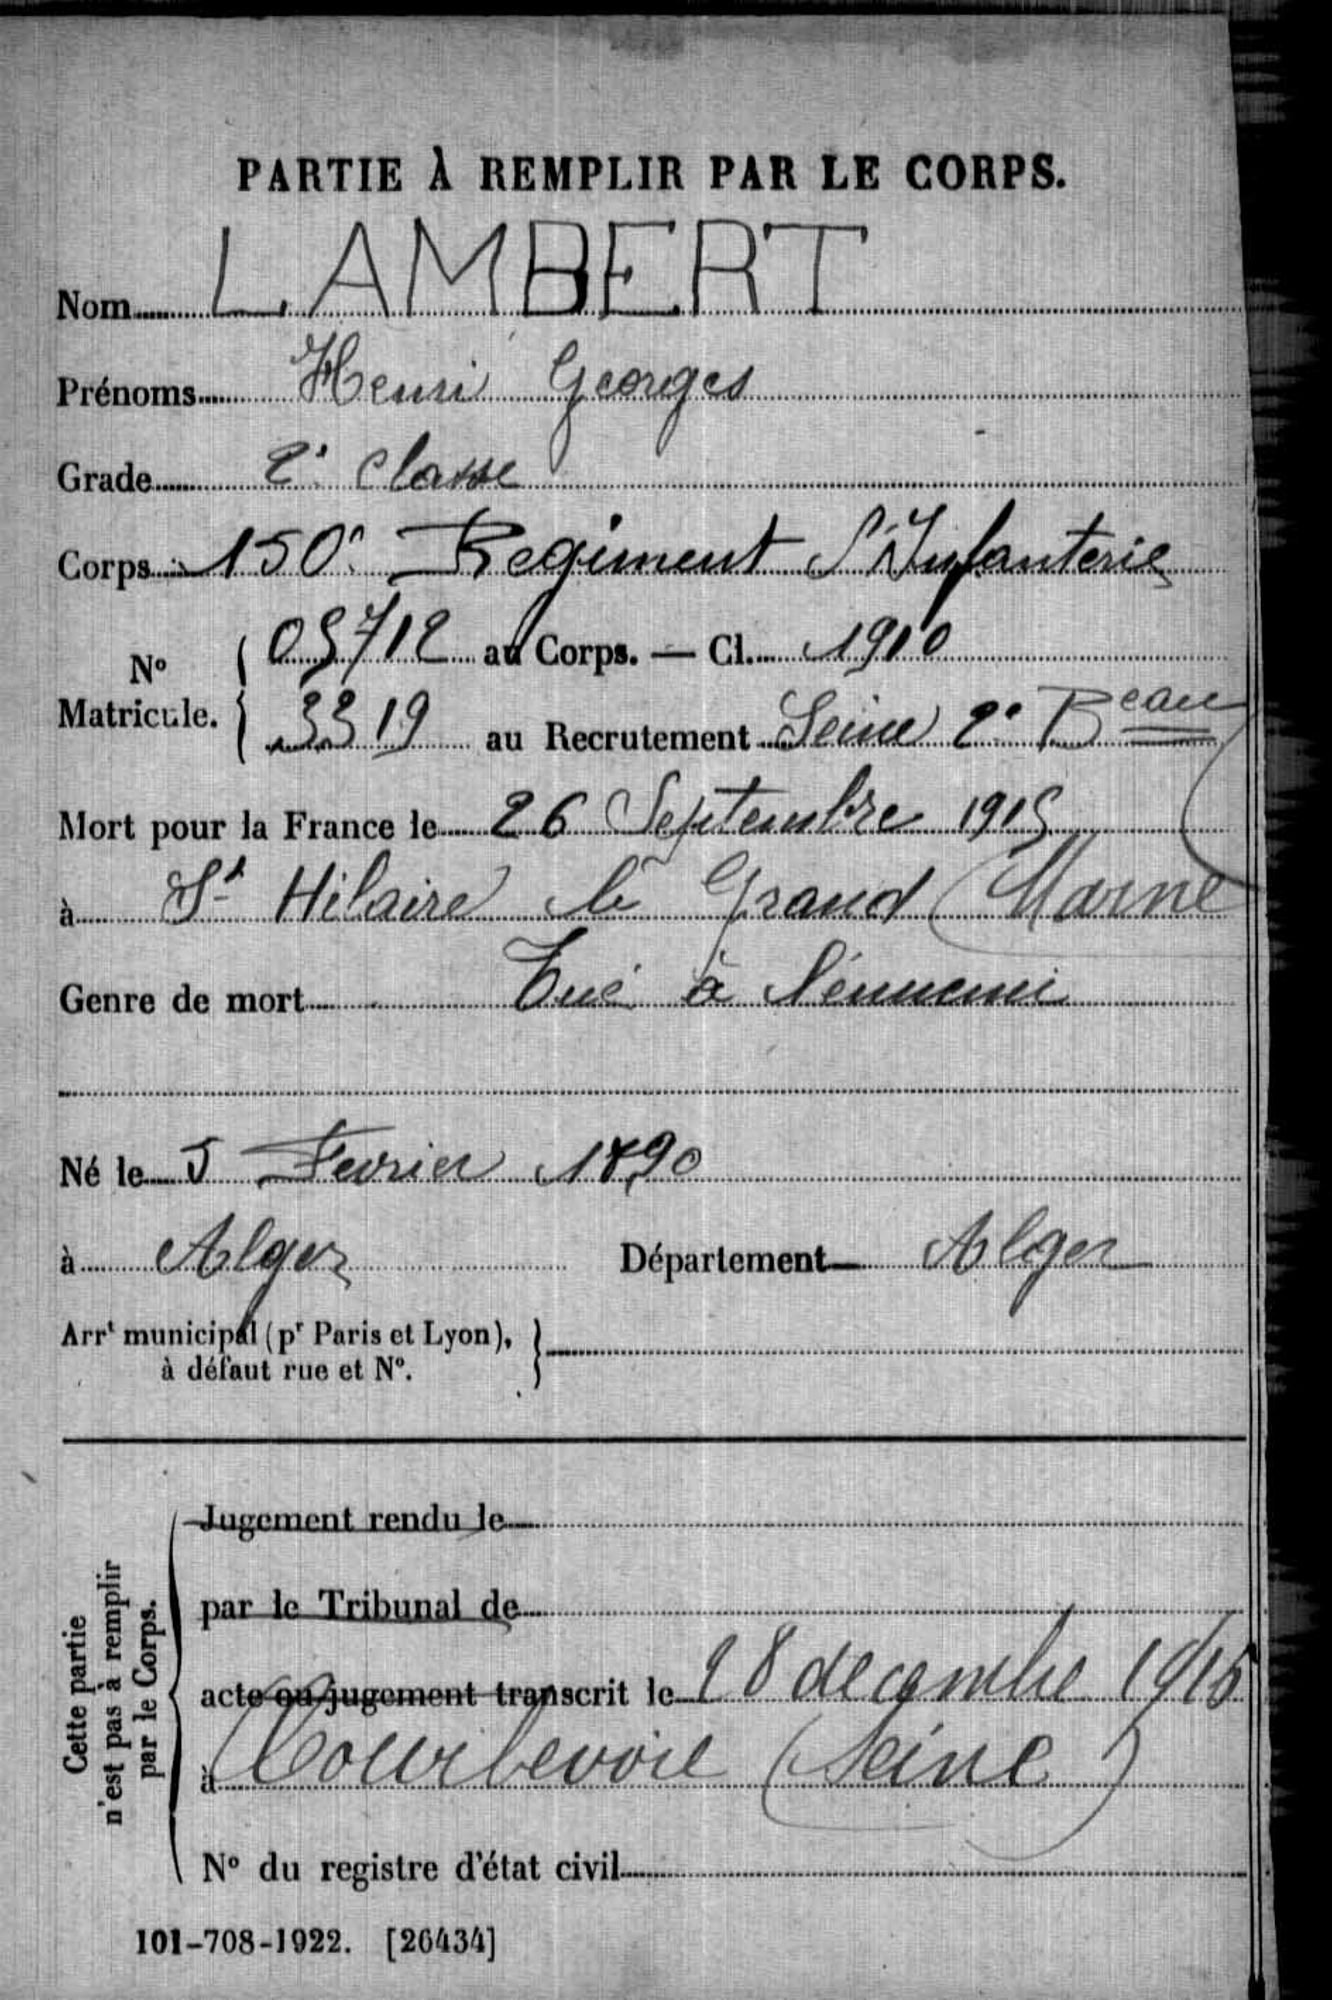 PARTIE À REMPLIR PAR LE CORPS.
Nom LAMBERT
Prénoms Henri Georges
Grade 2e Classe
Corps 150e Régiment d'Infanterie
No Matricule. { 05712 au Corps. — Cl. 1910
3319 au Recrutement Seine 2e Beau
Mort pour la France le 26 Septembre 1915
à St Hilaire le Grand (Marne)
Genre de mort Tué à l'énnemi
Né le 5 Fevrier 1890
à Alger Département Alger
Arrt municipal (pr Paris et Lyon), }
à défaut rue et No.
Cette partie
n'est pas à remplir
par le Corps.
Jugement rendu le
par le Tribunal de
acte ou jugement transcrit le 18 decembre 1915
à Courbevoie (Seine)
No du registre d'état civil
101-708-1922. [26434]